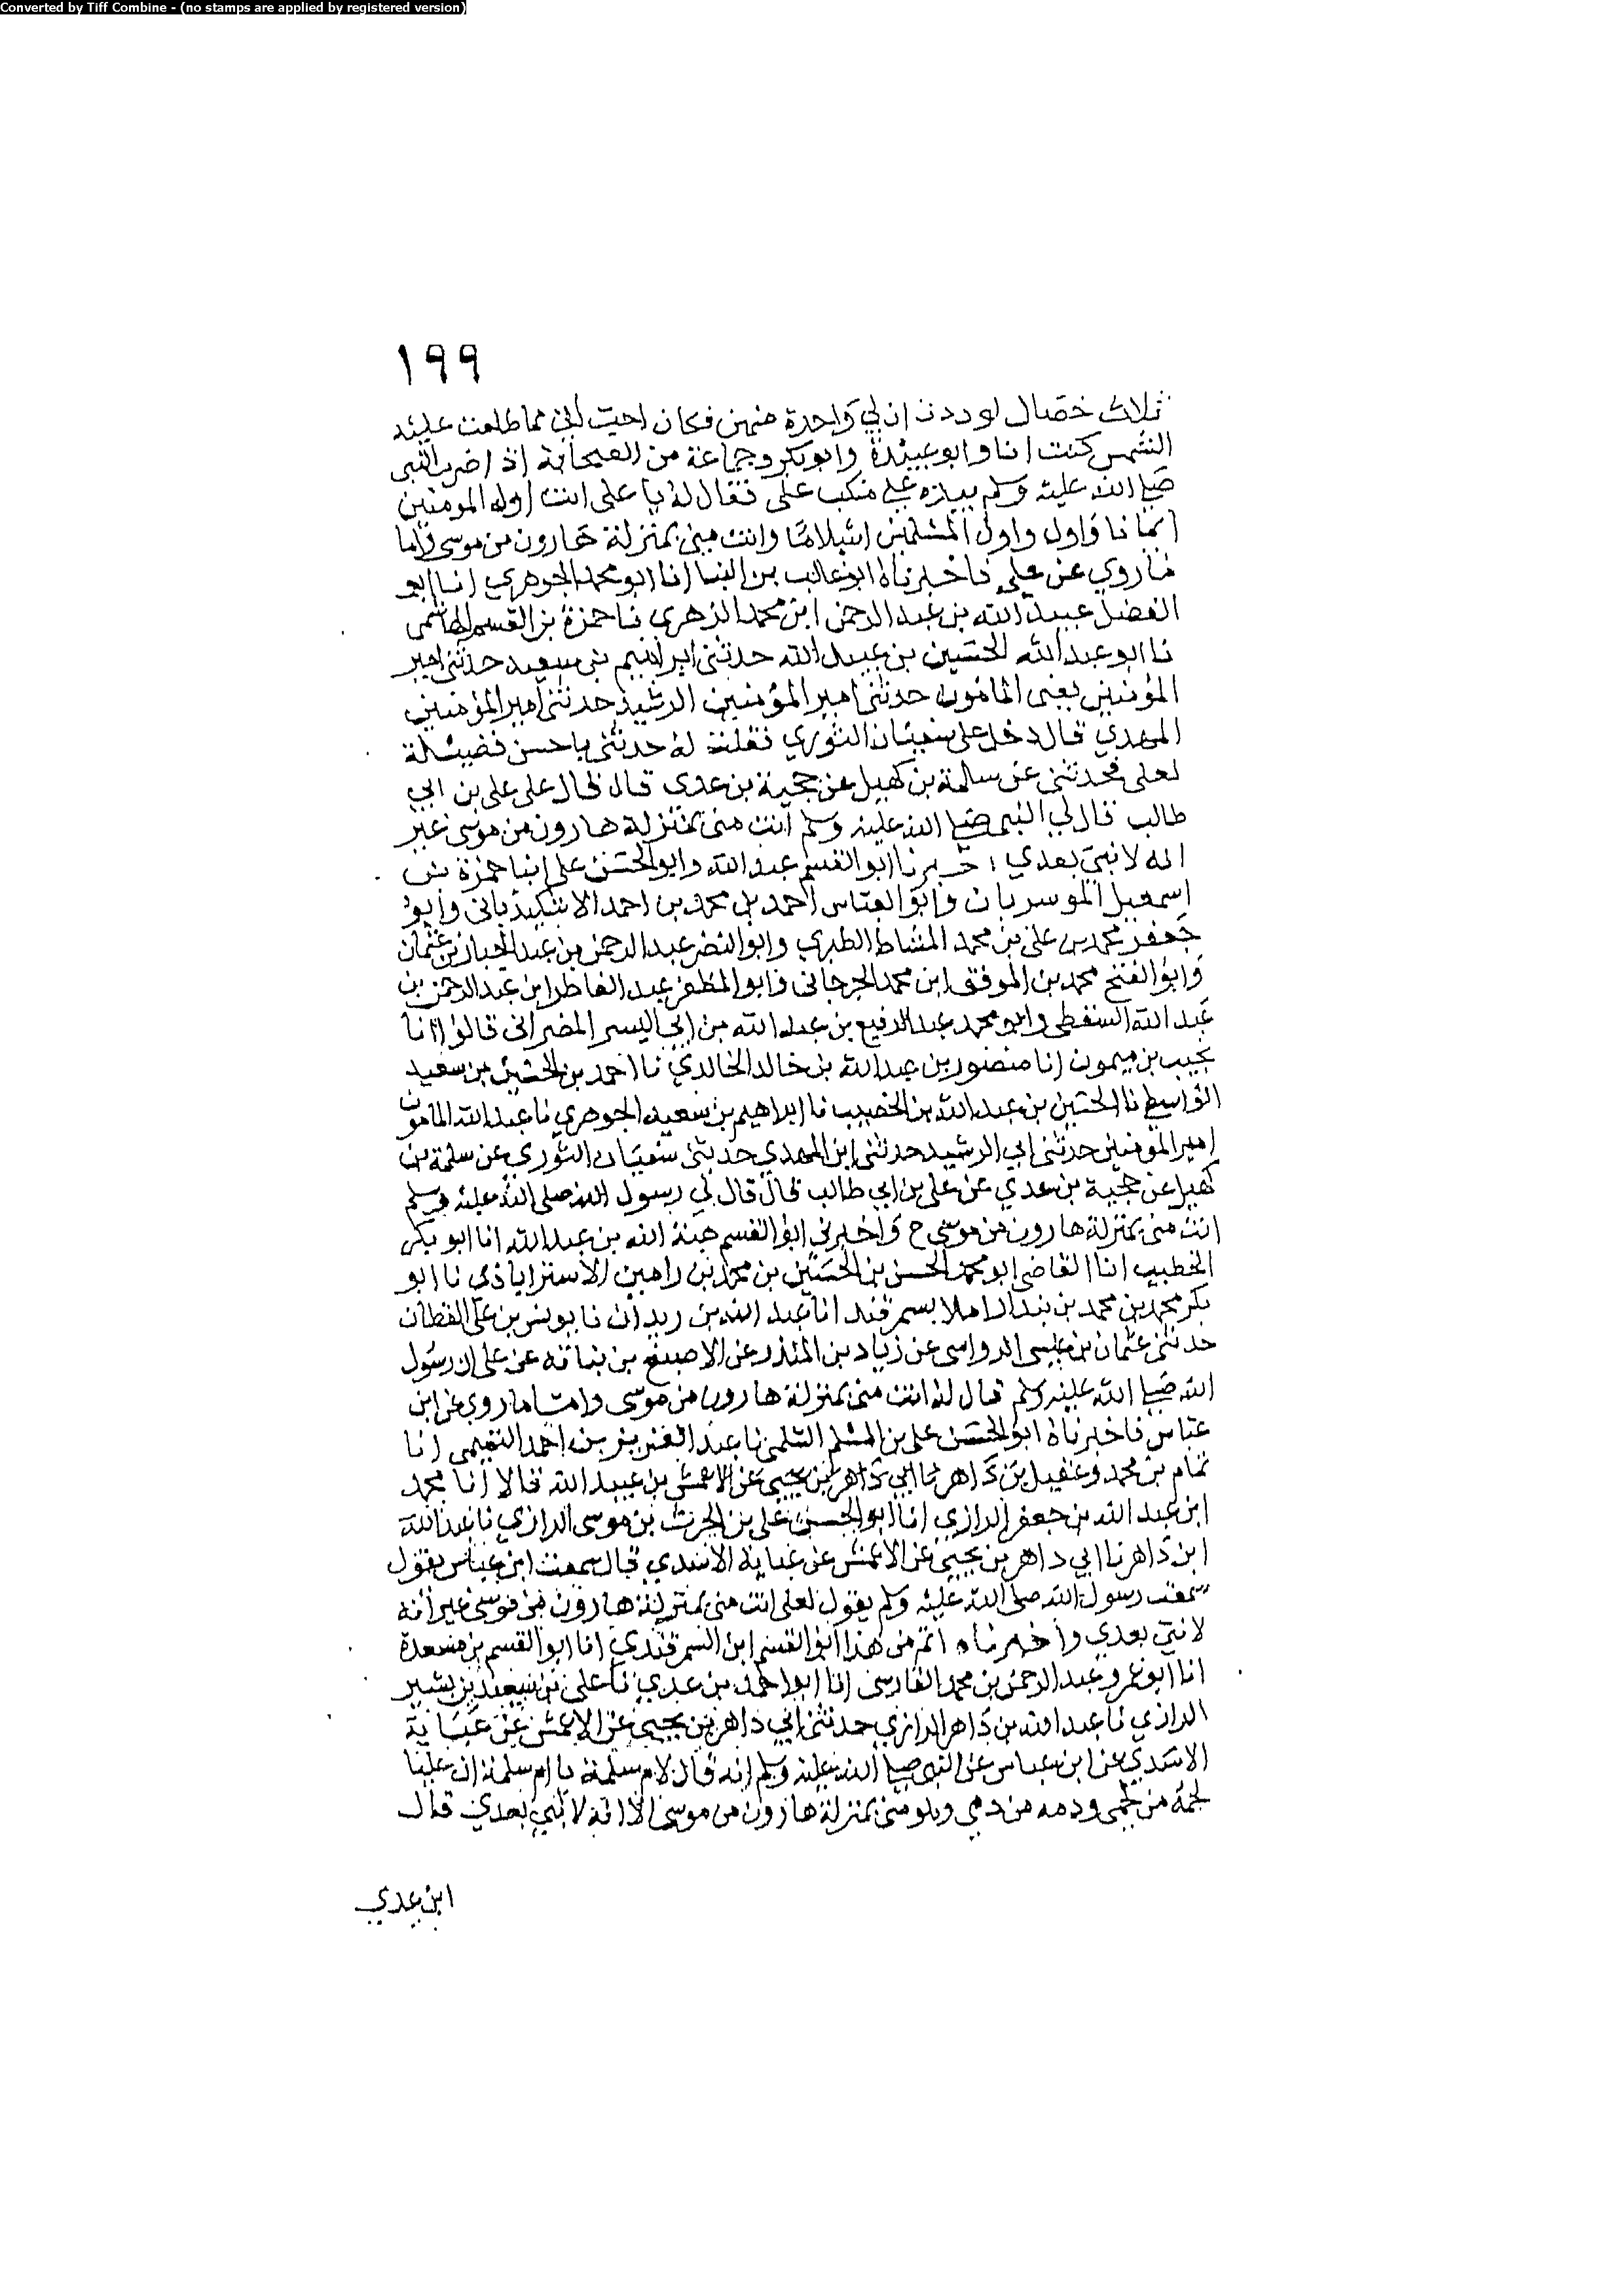 Converted by Tiff Combine - (no stamps are applied by registered version)
١٩٩
ثلاث خصال لوددت ان لي واحدة منهن فكان احب الي مما طلعت عليه
الشمس كنت انا وابو عبيدة وابو بكر وجماعة من الصحابة إذ اضرب النبي
صلى الله عليه وسلم بيده على منكب علي فقال له يا علي انت اول المومنين
ايمانا واول المسلمين اسلاما وانت مني بمنزلة هارون من موسى واما
ما روي عن علي فاخبرناه ابو غالب بن البنا انا ابو محمد الجوهري انا ابو
الفضل عبيد الله بن عبد الرحمن ابن محمد الزهري نا حمزة بن القسم الهاشمي
نا ابو عبد الله الحسين بن عبيد الله حدثني ابراهيم بن سعيد حدثني امير
المؤمنين يعني المامون حدثني امير المؤمنين الرشيد حدثني امير المؤمنين
المهدي قال دخل علي سفيان الثوري فقلت له حدثني باحسن فضيلة
لعلي فحدثني عن سلمة بن كهيل عن حجية بن عدي قال قال علي علي بن ابي
طالب قال لي النبي صلى الله عليه وسلم انت مني بمنزلة هارون من موسى غير
انه لا نبي بعدي اخبرنا ابو القسم عبد الله وابو الحسن علي ابنا حمزة بن
اسمعيل الموسويان وابو العباس احمد بن محمد بن احمد وابو
جعفر محمد بن علي بن محمد المشاط الطبري وابو النضر عبد الرحمن بن عبد الجبار بن عثمان
وابو الفتح محمد بن الموفق ابن محمد الجرجاني وابو المظفر عبد الفاطر ابن عبد الرحمن بن
عبد الله السقطي وابو محمد عبد الرفيع بن عبد الله بن ابي اليسر قالوا انا
نجيب بن ميمون انا منصور بن عبد الله بن خالد الخالدي نا احمد بن الحسين بن سعيد
الواسطي نا الحسين بن عبد الله بن الخصيب نا ابراهيم بن سعيد الجوهري نا عبد الله المامون
امير المومنين حدثني ابي الرشيد حدثني ابن المهدي حدثني سفيان الثوري عن سلمة بن
كهيل عن حجية بن عدي عن علي بن ابي طالب قال قال لي رسول الله صلى الله عليه وسلم
انت مني بمنزلة هارون من موسى ح واخبرني ابو القسم هبة الله بن عبد الله انا ابو بكر
الخطيب انا القاضي ابو محمد الحسن بن الحسين بن محمد بن رامين الاستراباذي نا ابو
بكر محمد بن محمد بن بندار املا بسمرقند انا عبد الله بن زيدان نا يونس بن علي القطان
حدثني عثمان بن عيسى الرواسي عن زياد بن المنذر عن الاصبغ بن نباته عن علي ان رسول
الله صلى الله عليه وسلم قال له انت مني بمنزلة هارون من موسى واما ما روي عن ابن
عباس فاخبرناه ابو الحسن علي بن المسلم السلمي نا عبد العزيز بن احمد التميمي انا
تمام بن محمد وعقيل بن عبيد الله قالا انا محمد
ابن عبد الله بن جعفر الرازي انا ابو الحسن علي بن الحرث بن موسى الرازي نا عبد الله
ابن داهر نا ابي داهر بن يحيى عن الاعمش عن عباية الاسدي قال سمعت ابن عباس يقول
سمعت رسول الله صلى الله عليه وسلم يقول لعلي انت مني بمنزلة هارون من موسى غير انه
لا نبي بعدي واخبرناه اتم من هذا ابو القسم ابن السمرقندي انا ابو القسم بن مسعدة
انا ابو عمرو عبد الرحمن بن محمد الفارسي انا ابو احمد بن عدي نا علي بن سعيد بن بشير
الرازي نا عبد الله بن داهر الرازي حدثني ابي داهر بن يحيى عن الاعمش عن عباية
الاسدي عن ابن عباس عن النبي صلى الله عليه وسلم انه قال لام سلمة يا ام سلمة ان عليا
لحمه من لحمي ودمه من دمي وهو مني بمنزلة هارون من موسى الا انه لا نبي بعدي قال
ابن عدي